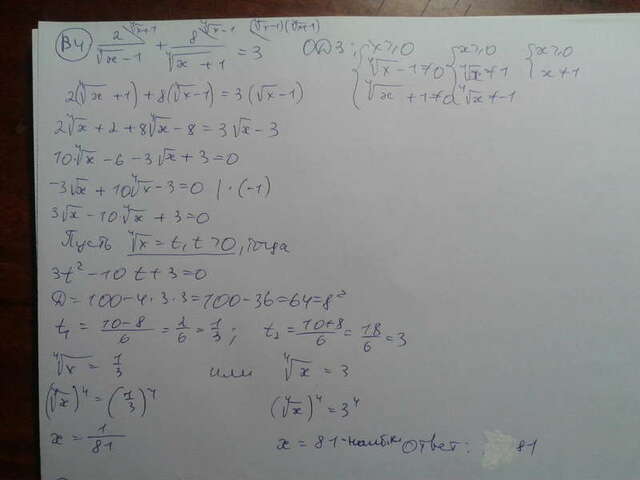 В4 2/(⁴√x-1) + 8/(⁴√x+1) = 3 ОДЗ: {x≥0 {x≥0 {x≥0
⁴√x+1 ⁴√x-1 (⁴√x-1)(⁴√x+1) ⁴√x-1≠0 ⁴√x≠1 x≠1
⁴√x+1≠0 ⁴√x≠-1
2(⁴√x+1)+8(⁴√x-1)=3(√x-1)
2⁴√x+2+8⁴√x-8=3√x-3
10⁴√x-6-3√x+3=0
-3√x+10⁴√x-3=0 |·(-1)
3√x-10·⁴√x+3=0
Пусть ⁴√x=t, t≥0, тогда
3t²-10t+3=0
D=100-4·3·3=100-36=64=8²
t₁=(10-8)/6=2/6=1/3; t₂=(10+8)/6=18/6=3
⁴√x=1/3 или ⁴√x=3
(⁴√x)⁴=(1/3)⁴ (⁴√x)⁴=3⁴
x=1/81 x=81-наиб. Ответ: 81